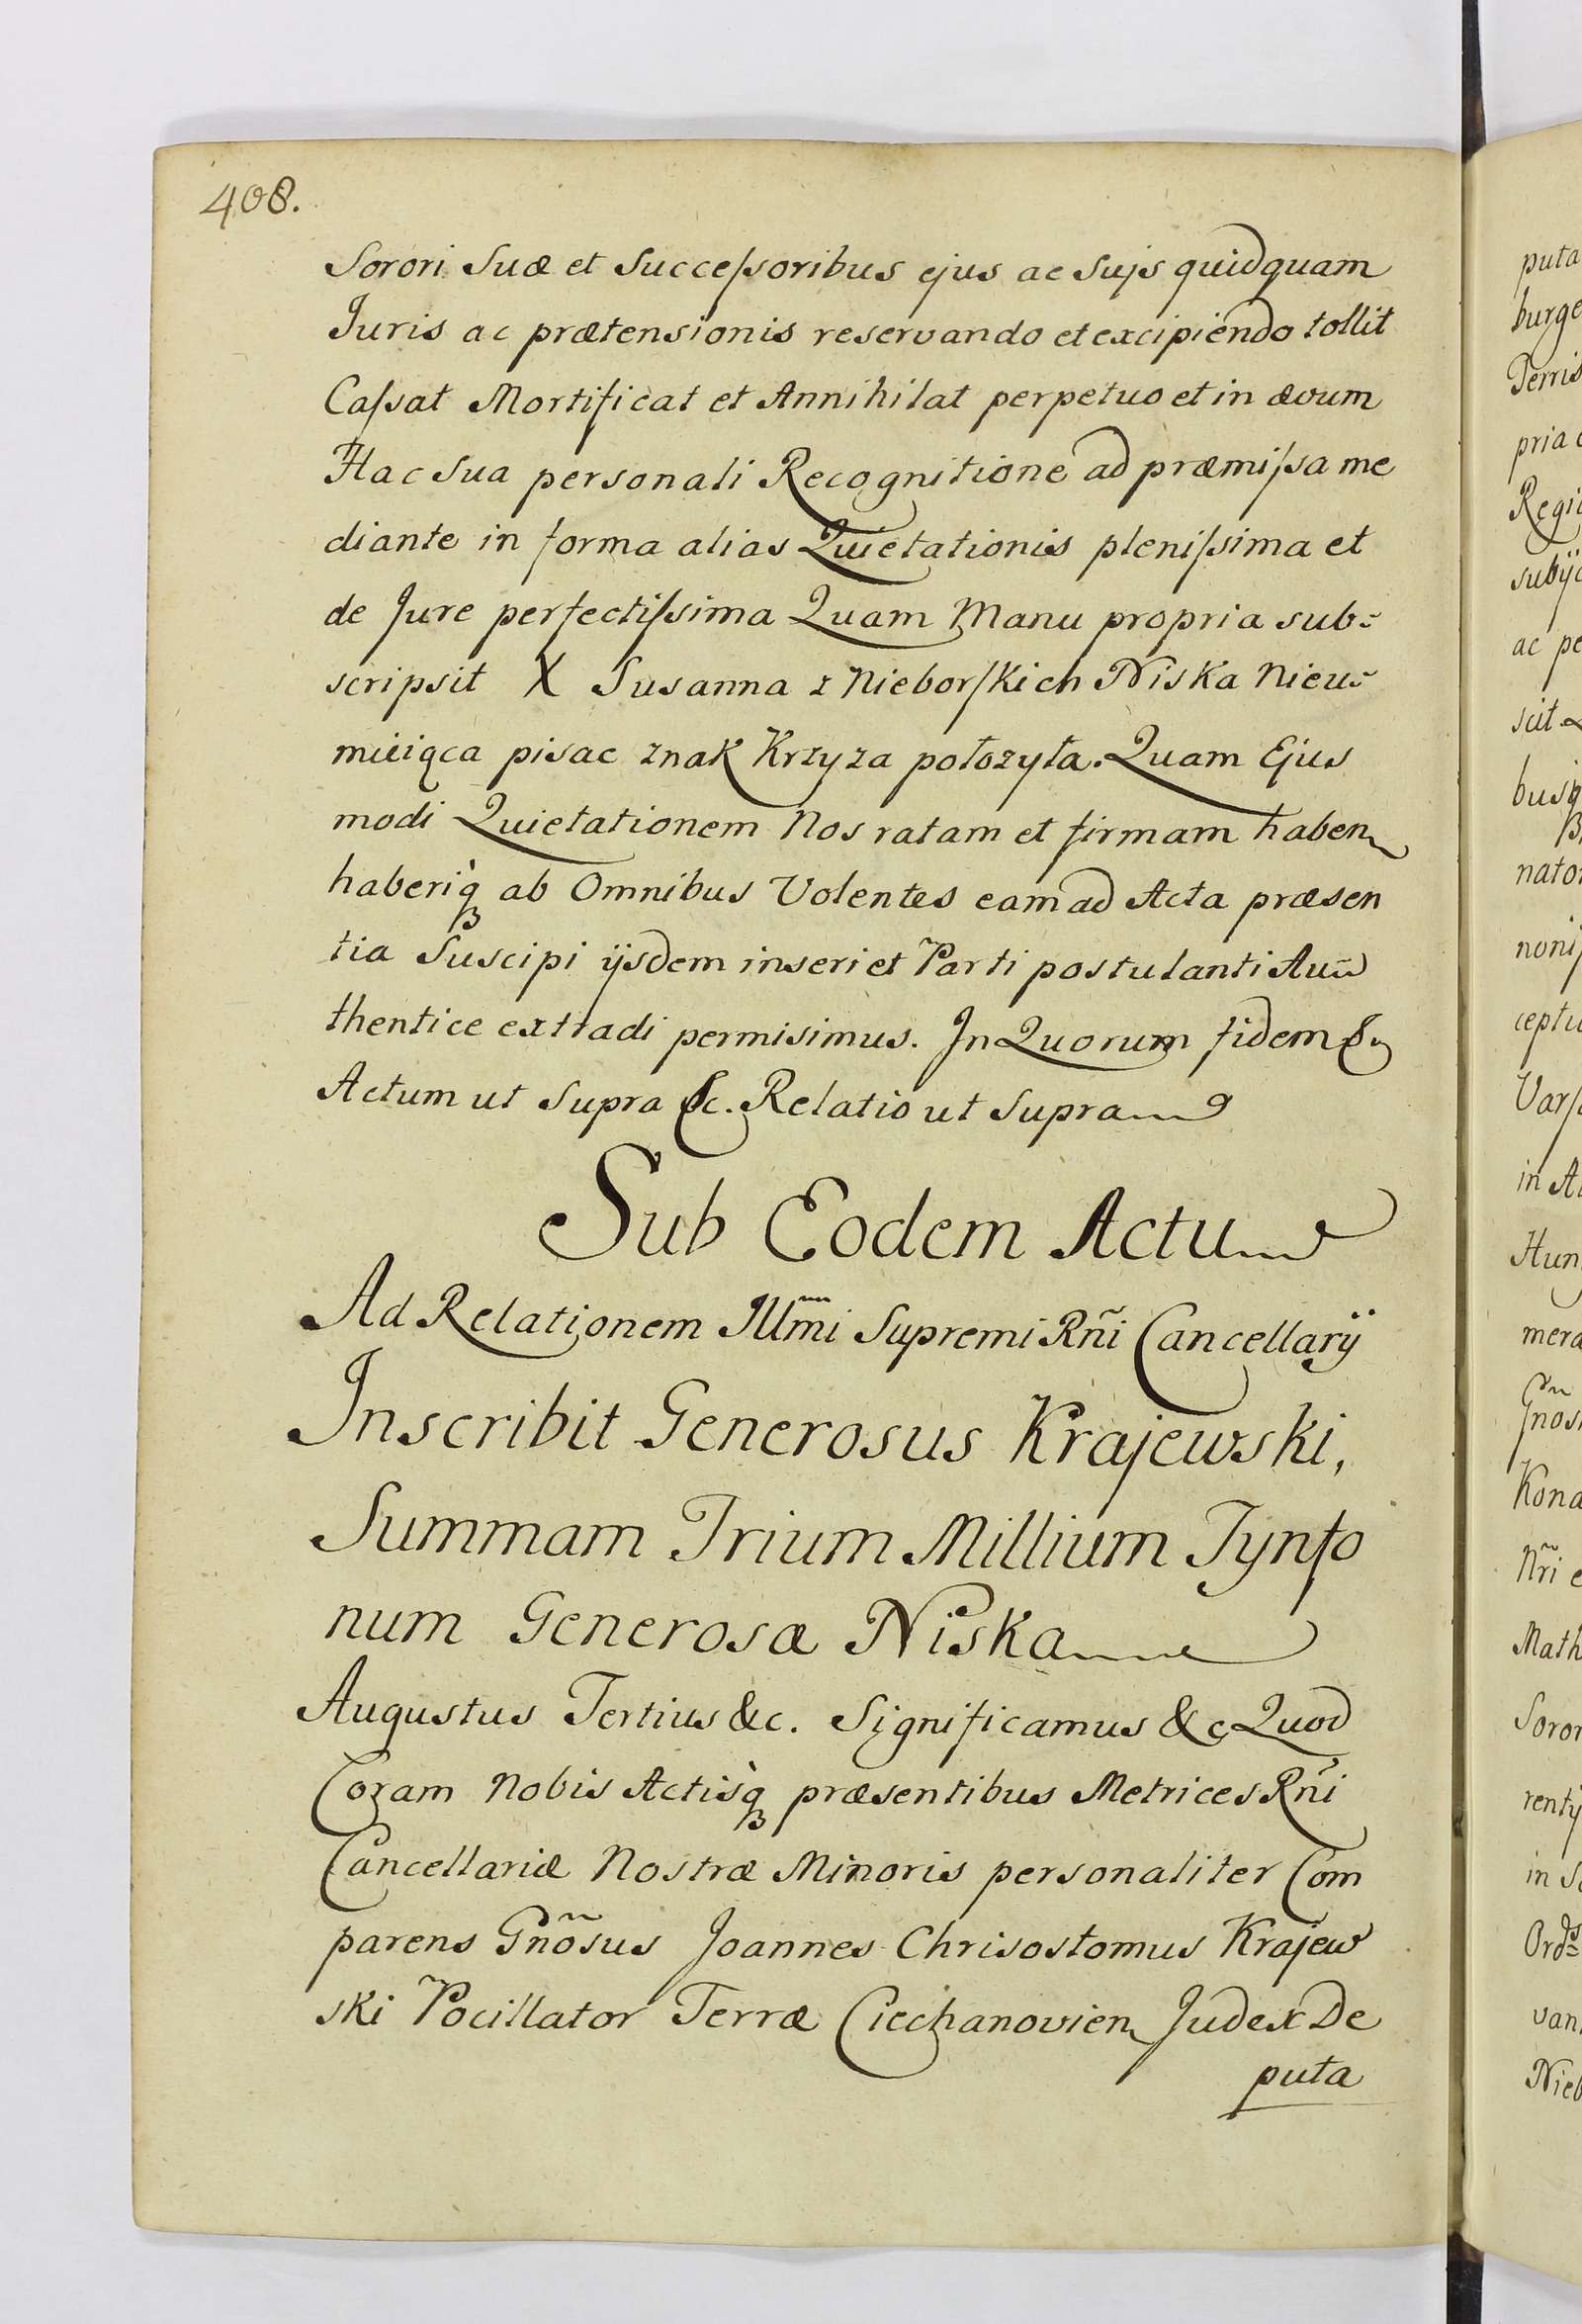 408.
Sorori Suæ et Succeſsoribus ejus ac Sujs quidquam
Juris ac prætensionis reservando et excipiendo tollit
Caſsat Mortificat et Annihilat perpetuo et in ævum
Hac Sua personali Recognitione ad præmiſsa me
diante in forma alias Quietationis pleniſsima et
de Jure perfectiſsima Quam Manu propria sub-
scripsit X Susanna z Nieborſkich Niska Nieu-
mieiąca pisac znak Krzyza połozyła. Quam Ejus
modi Quietationem Nos ratam et firmam haben
haberiq̀ ab Omnibus Volentes eam ad Acta præsen
tia Suscipi ijsdem inseri et Parti postulanti Au
thentice extradi permisimus. In Quorum fidem &
Actum ut Supra &c. Relatio ut Supra
Sub Eodem Actu
Ad Relationem Illm̃i Supremi Rñi Cancellarij
Inscribit Generosus Krajewski,
Summam Trium Millium Tynfo
num Generosæ Niska
Augustus Tertius &c. Significamus &c Quod
Coram Nobis Actisq̀ præsentibus Metrices Rñi
Cancellariæ Nostræ Minoris personaliter Com
parens Gñosus Joannes Chrisostomus Krajew
ski Pocillator Terræ Ciechanovien Judex De
puta
puta
burge
Terris
pria
Regi
subij
ac pe
scit
busq
nator
noni
ceptu
Varſ
in A
Hun
mera
Gños
Kona
Nr̃i e
Math
Soror
rentij
in S
Ord̃s
van
Nieb